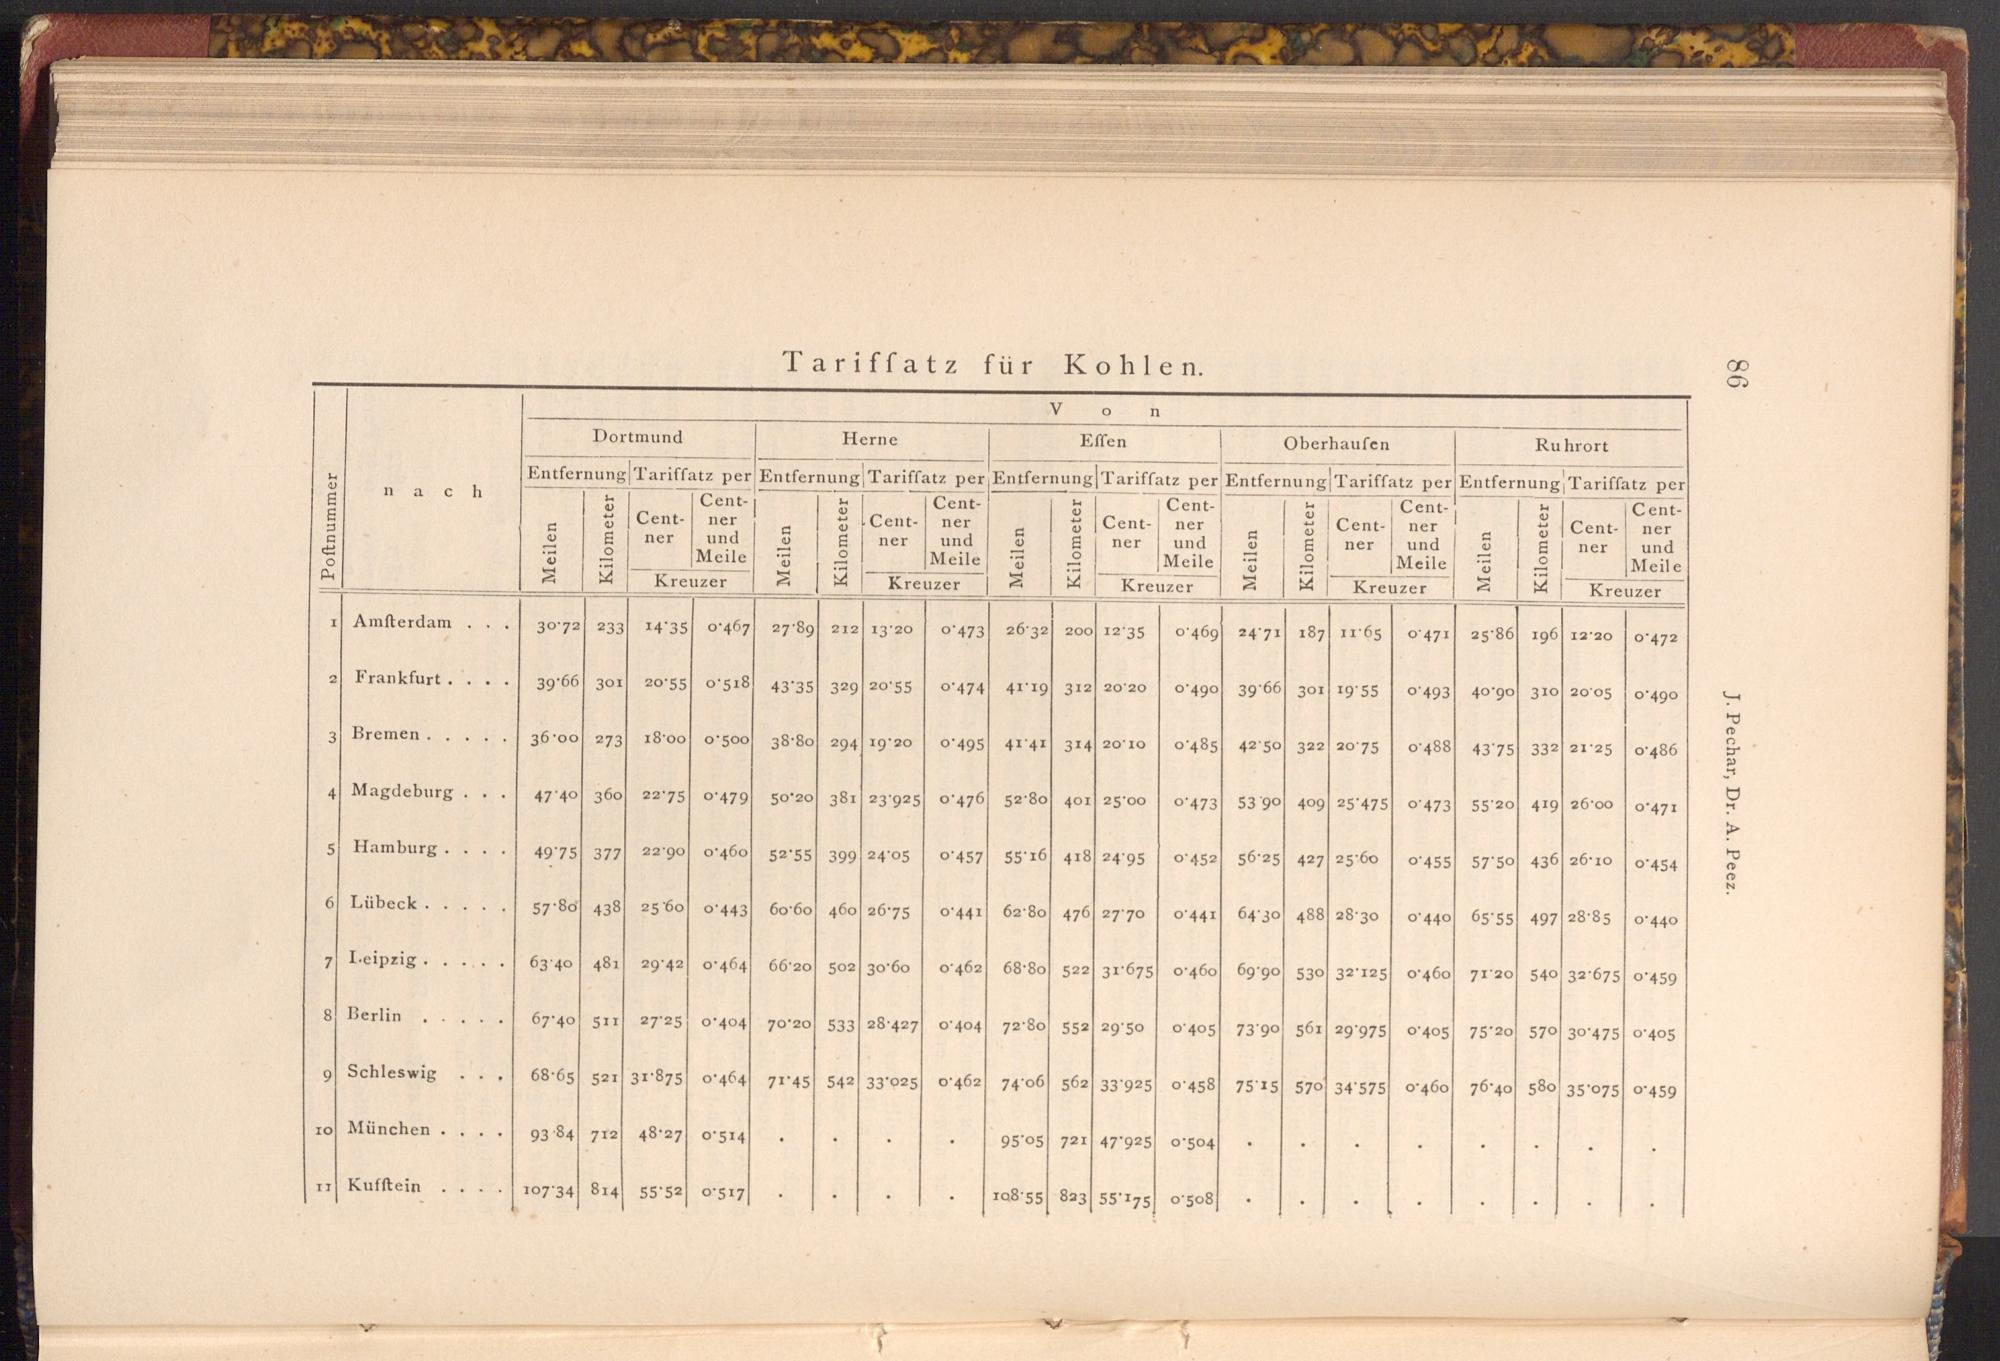 Tarifſatz für Kohlen.
86
J. Pechar, Dr. A. Peez.
Poſtnummer
nach
Von
Dortmund Herne Eſſen Oberhauſen Ruhrort
Entfernung Tarifſatz per Entfernung Tarifſatz per Entfernung Tarifſatz per Entfernung Tarifſatz per Entfernung Tarifſatz per
Meilen Kilometer Cent-ner Cent-ner und Meile Meilen Kilometer Cent-ner Cent-ner und Meile Meilen Kilometer Cent-ner Cent-ner und Meile Meilen Kilometer Cent-ner Cent-ner und Meile Meilen Kilometer Cent-ner Cent-ner und Meile
Kreuzer Kreuzer Kreuzer Kreuzer Kreuzer
1 Amſterdam . . . 30·72 233 14·35 0·467 27·89 212 13·20 0·473 26·32 200 12·35 0·469 24·71 187 11·65 0·471 25·86 196 12·20 0·472
2 Frankfurt . . . . 39·66 301 20·55 0·518 43·35 329 20·55 0·474 41·19 312 20·20 0·490 39·66 301 19·55 0·493 40·90 310 20·05 0·490
3 Bremen . . . . . 36·00 273 18·00 0·500 38·80 294 19·20 0·495 41·41 314 20·10 0·485 42·50 322 20·75 0·488 43·75 332 21·25 0·486
4 Magdeburg . . . 47·40 360 22·75 0·479 50·20 381 23·925 0·476 52·80 401 25·00 0·473 53·90 409 25·475 0·473 55·20 419 26·00 0·471
5 Hamburg . . . . 49·75 377 22·90 0·460 52·55 399 24·05 0·457 55·16 418 24·95 0·452 56·25 427 25·60 0·455 57·50 436 26·10 0·454
6 Lübeck . . . . . 57·80 438 25·60 0·443 60·60 460 26·75 0·441 62·80 476 27·70 0·441 64·30 488 28·30 0·440 65·55 497 28·85 0·440
7 Leipzig . . . . . 63·40 481 29·42 0·464 66·20 502 30·60 0·462 68·80 522 31·675 0·460 69·90 530 32·125 0·460 71·20 540 32·675 0·459
8 Berlin . . . . . 67·40 511 27·25 0·404 70·20 533 28·427 0·404 72·80 552 29·50 0·405 73·90 561 29·975 0·405 75·20 570 30·475 0·405
9 Schleswig . . . 68·65 521 31·875 0·464 71·45 542 33·025 0·462 74·06 562 33·925 0·458 75·15 570 34·575 0·460 76·40 580 35·075 0·459
10 München . . . . 93·84 712 48·27 0·514 . . . . 95·05 721 47·925 0·504 . . . . . . . .
11 Kufſtein . . . . 107·34 814 55·52 0·517 . . . . 108·55 823 55·175 0·508 . . . . . . . .